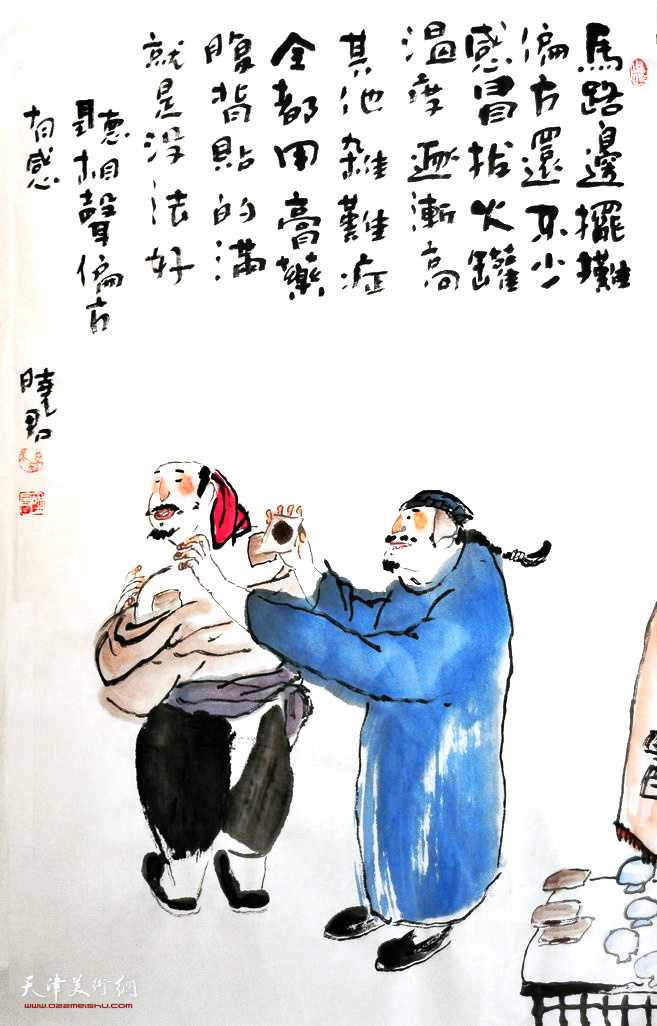 馬路邊擺攤
偏方還不少
感冒拔火罐
溫度逐漸高
其他雜難症
全都用膏藥
腹背貼的滿
就是没法好
聽相聲偏方
有感
曉君
天津美術網
www.022meishu.com